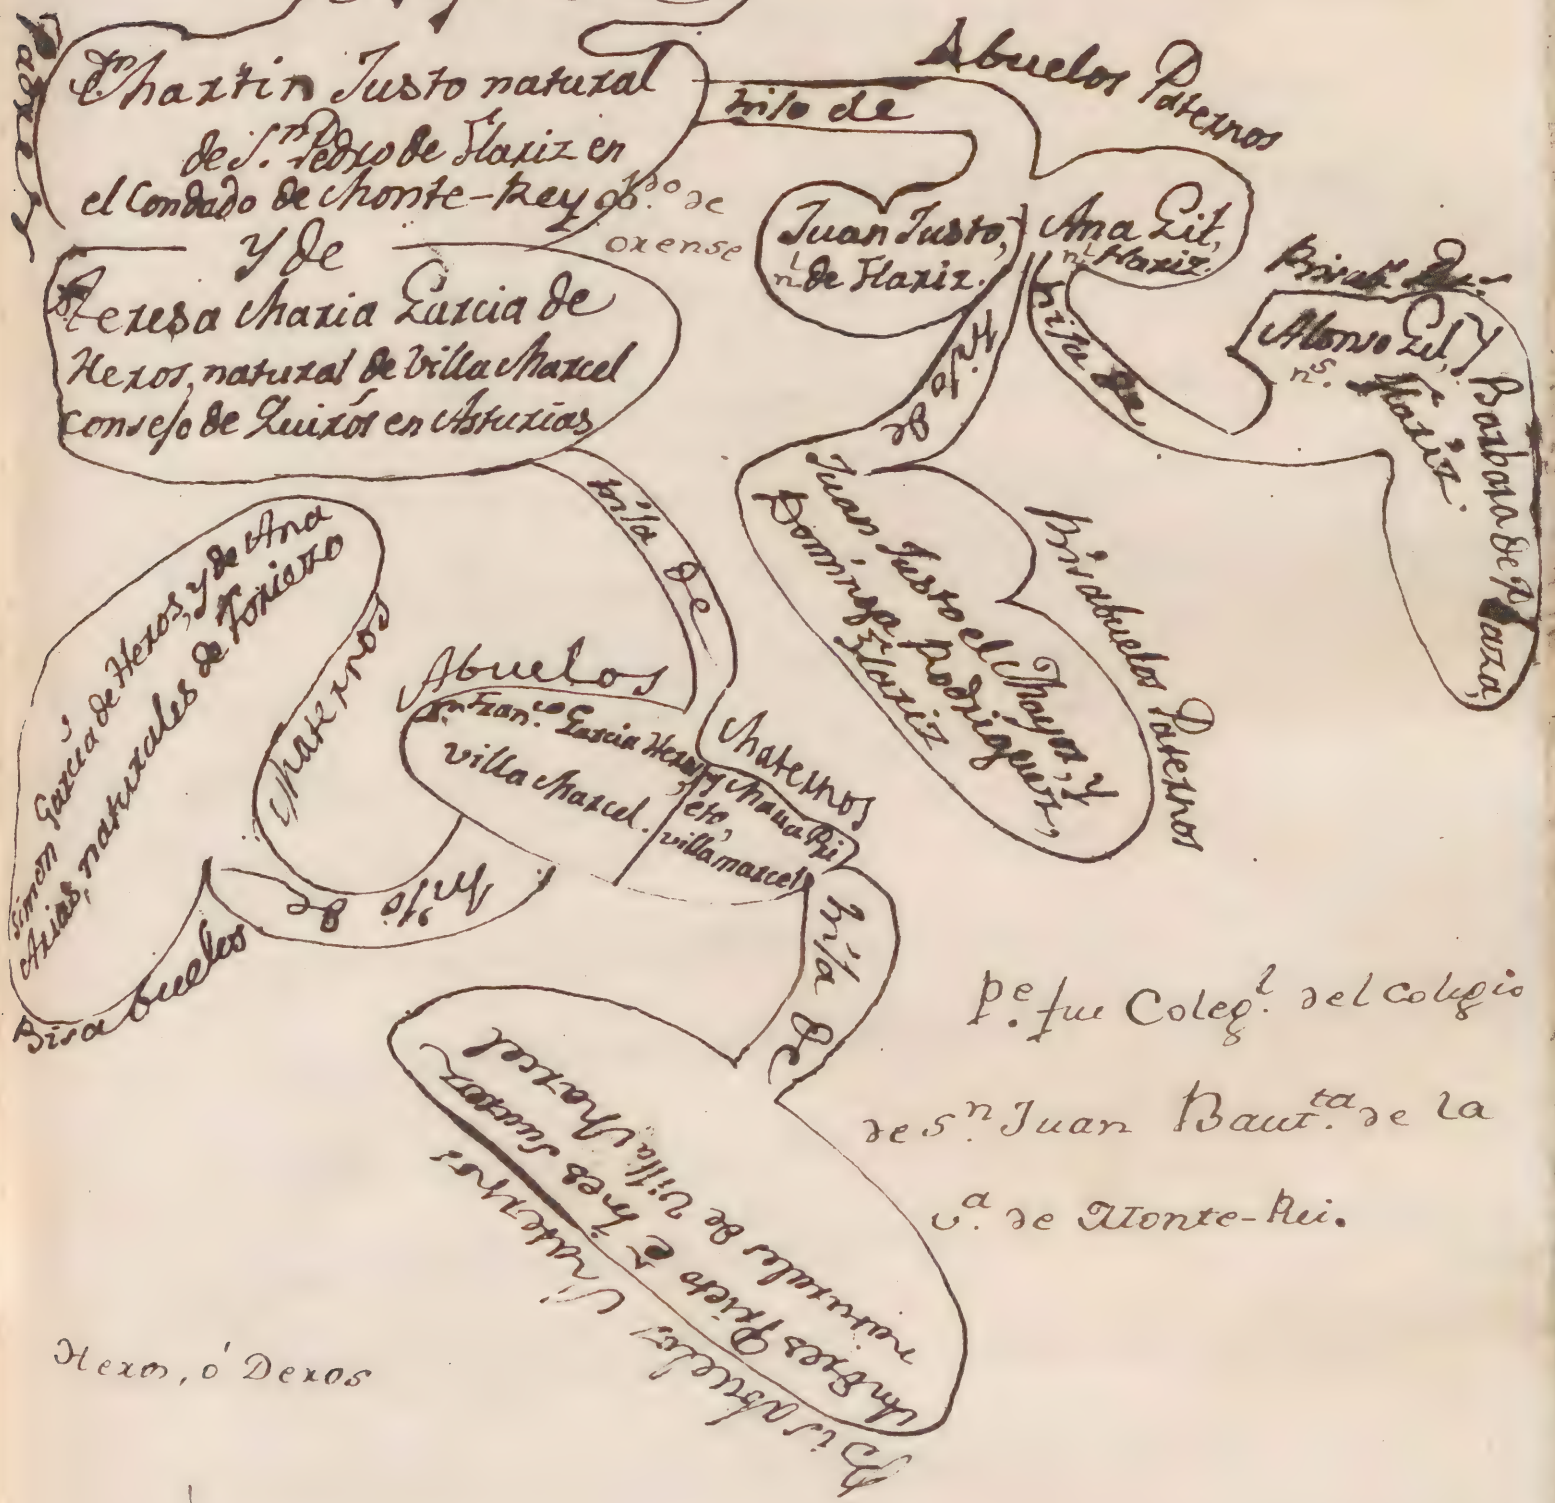 Padres
Dn Martin Justo natural
de S.n Pedro de Flariz en
el Condado de Monte-Rey obpdo. de
orense
y de
Da. Teresa Maria Garcia de
Heros, natural de Villa Marcel
Consejo de Quirós en Asturias
hijo de
Abuelos Paternos
Juan Justo,
nl. de Flariz.
Ana Gil,
nl. Flariz.
hija de
Alonso Gil, y
Barbara de Plaza,
ns. Flariz.
Hijo de
Juan Justo el Mayor, y
Dominga Rodriguez,
Flariz
Bisabuelos Paternos
hija de
Abuelos
Maternos
Dn Fran.co Garcia Heros, y Maria Pri
eto,
villa Marcel.
villamarcel
hijo de
Simon Garcia de Heros, y de Ana
Arias, naturales de Toriezzo
Bisabuelos
Maternos
hija de
Andres Prieto é Ines Suarez
naturales de Villa Marcel
Bisabuelos Maternos
Pe. fue Coleg.l del colegio
de S.n Juan Baut.ta de la
v.a de Monte-Rei.
Heros, ó Deros